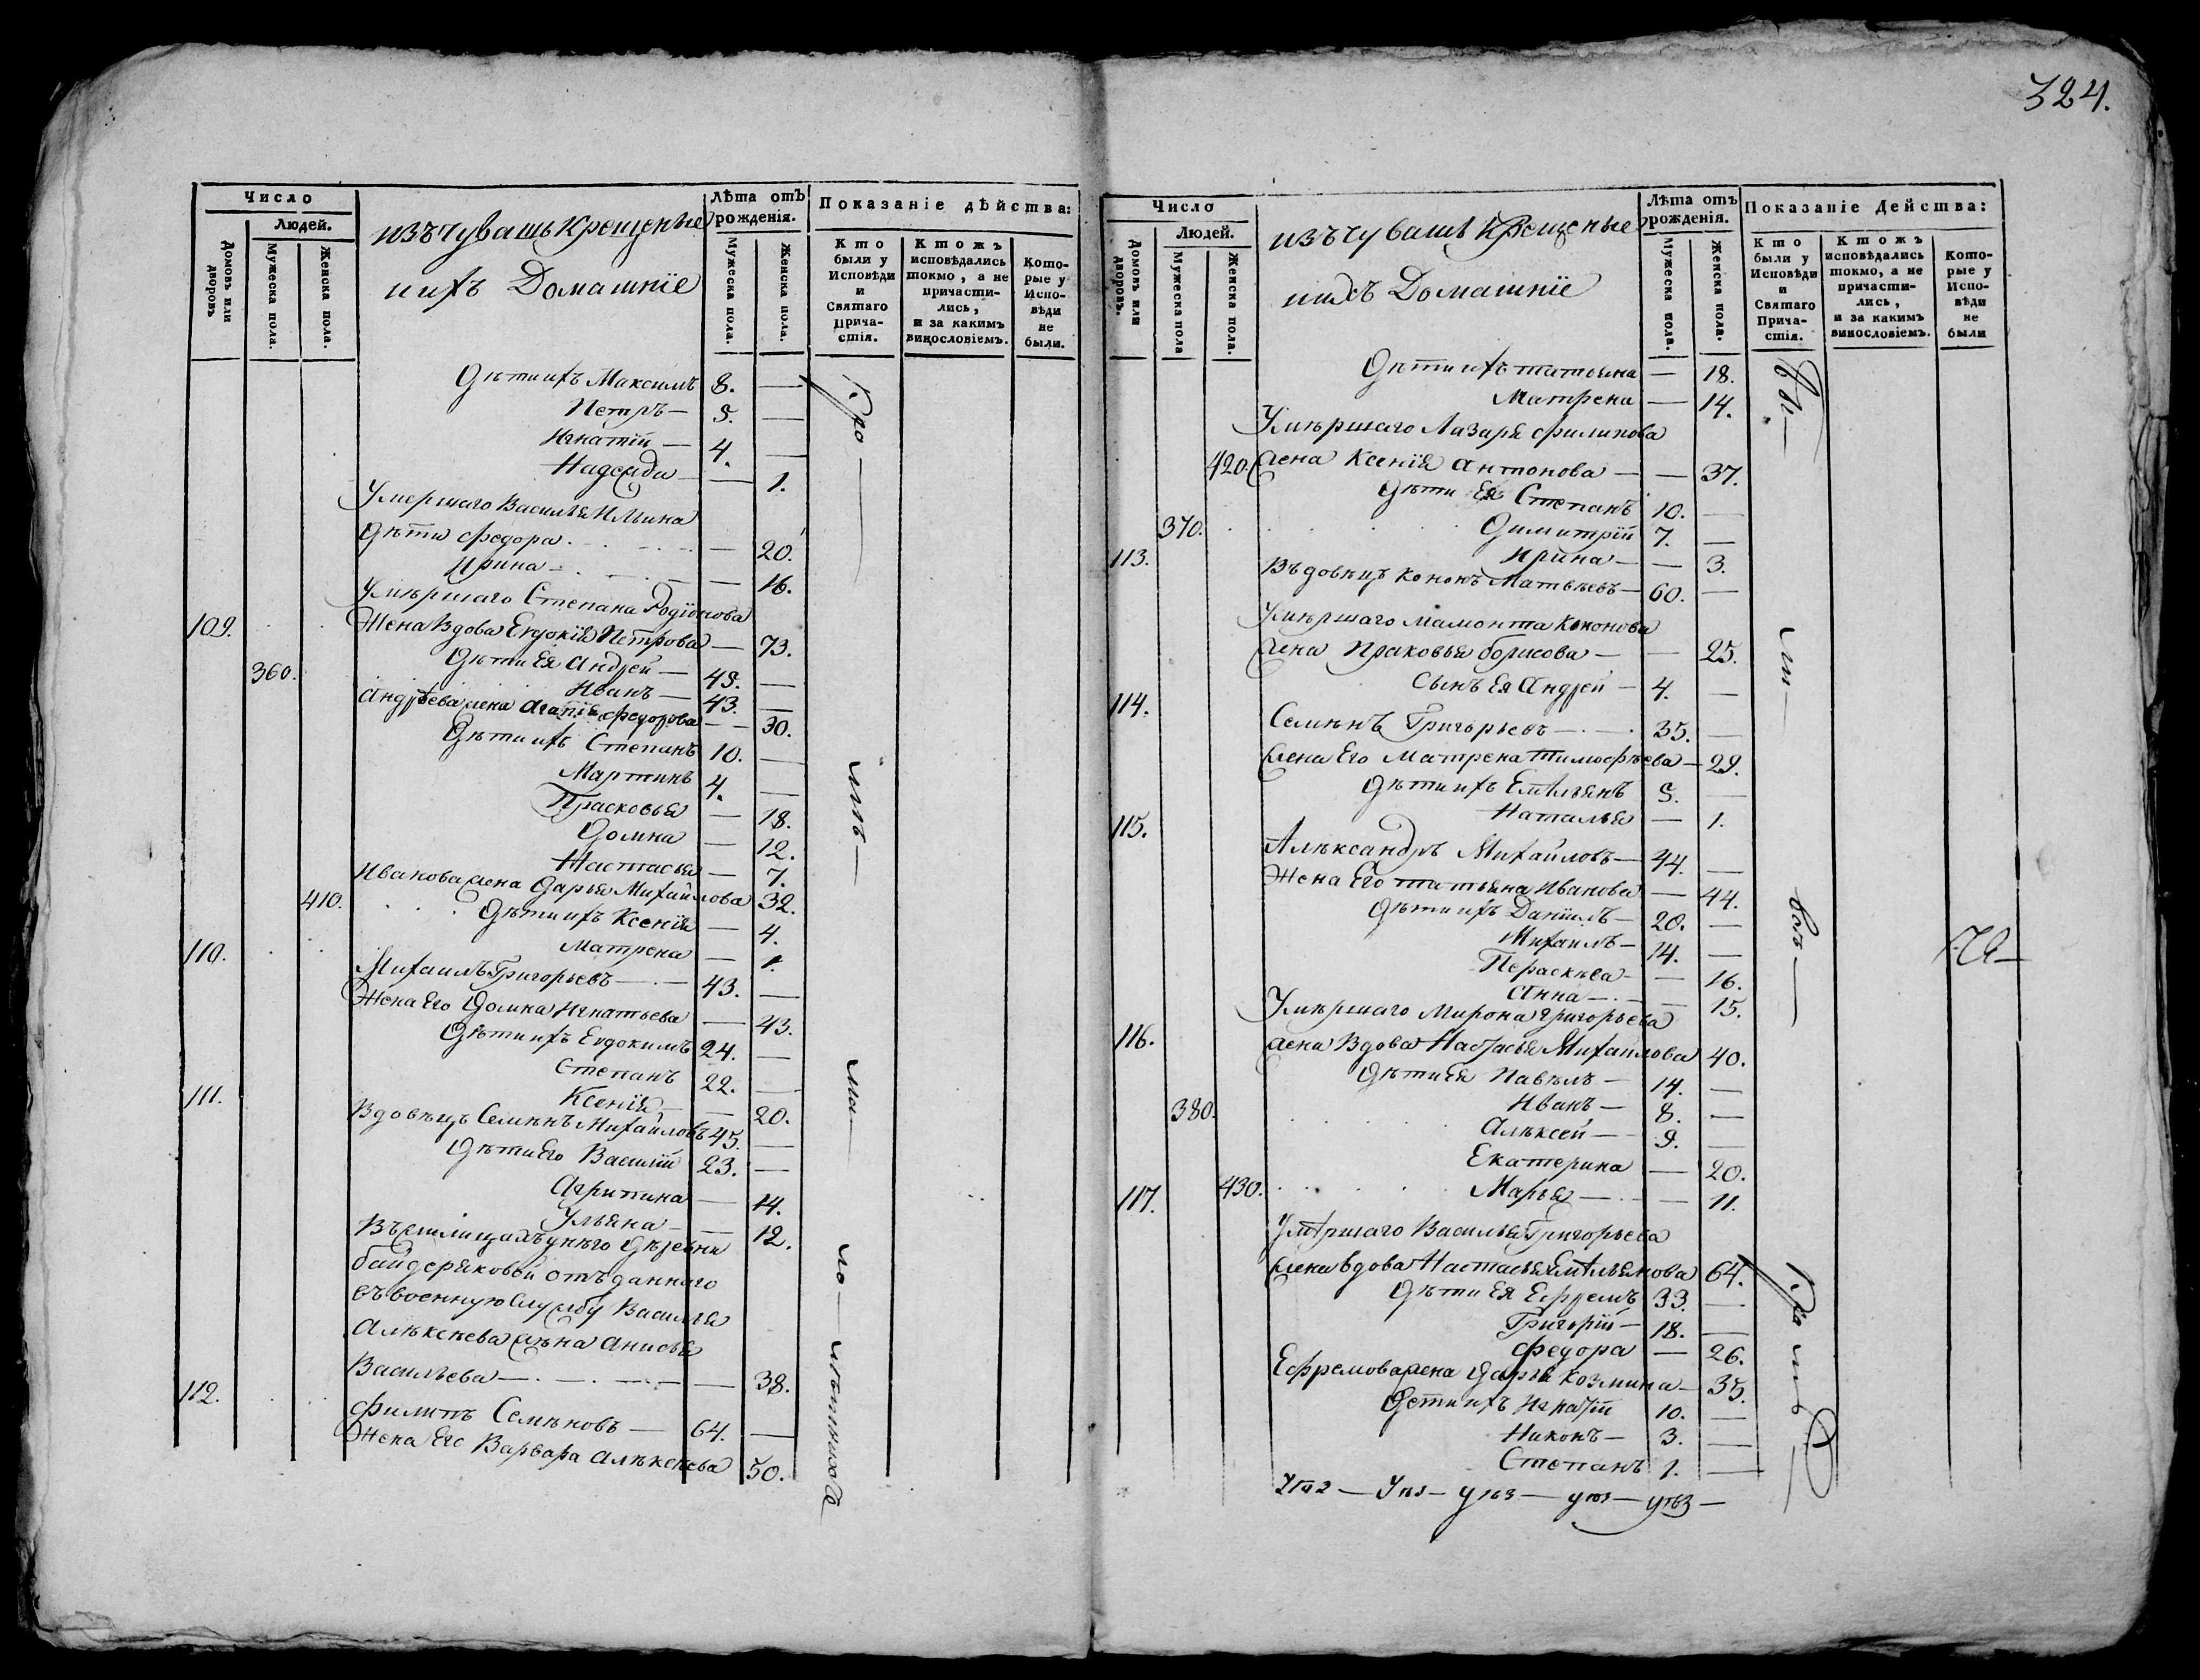 324.
Число
Людей.
Домовъ или дворовъ
Мужеска пола.
Женска пола.
изъ чувашъ Крещеные
и ихъ Домашніе
Лѣта отъ рожденія.
Мужеска пола.
Женска пола.
Показаніе дѣйства:
Кто были у Исповѣди и Святаго Прича-стія.
Ктожъ исповѣдались токмо, а не причасти-лись, и за какимъ винословіемъ.
Кото-рые у Испо-вѣди не были.
Дѣти ихъ Максимъ 8. —
Петръ — 5. —
Игнатій — 4. —
Надежда — — 1.
Умершаго Василья Ильина
Дѣти Федора — 20.
Ирина — — 16.
Умѣршаго Степана Родіонова
109. Жена Вдова Евдокія Петрова — 73.
360. Дѣти Ея Андрей — 49. —
Иванъ — 43. —
Андрѣева жена Агапія Федорова — 30.
Дѣти ихъ Степанъ 10. —
Мартинъ 4. —
Прасковья — 18.
Домна — 12.
Настасья — 7.
Иванова жена Дарья Михайлова 32.
410. Дѣти ихъ Ксенія — 4.
Матрена — 1.
110. Михаилъ Григорьевъ — 43. —
Жена Его Домна Игнатьева — 43.
Дѣти ихъ Евдокимъ 24. —
Степанъ 22. —
Ксенія — — 20.
111. Вдовѣцъ Семѣнъ Михайловъ 45. —
Дѣти Его Василій 23. —
Агрипина — 14.
Ульяна — — 12.
Въ жилищахъ у нѣго дѣревни
байдеряковой отъданнаго
въ военную службу Василья
Алѣксѣева жѣна Анисья
Васильева — — 38.
112. Филипъ Семѣновъ — 64. —
Жена Его Варвара Алѣксѣева 50.
Число
Людей.
Домовъ или дворовъ.
Мужеска пола
Женска пола.
изъ чувашъ Крещеные
и ихъ Домашніе
Лѣта отъ рожденія.
Мужеска пола.
Женска пола.
Показаніе Действа:
Кто были у Исповѣди и Святаго Прича-стія.
Ктожъ исповѣдались токмо, а не причасти-лись, и за какимъ винословіемъ.
Кото-рые у Испо-вѣди не были
Дѣти ихъ татьяна — 18.
Матрена — 14.
Умѣршаго Лазаря Филипова
420. жена Ксенія Антонова — — 37.
Дѣти Ея Степанъ 10. —
370. Димитрій 7. —
Ирина — — 3.
113. Въдовѣцъ Кононъ Матвѣевъ — 60. —
Умѣршаго Мамонта Кононова
жена Праковья борисова — — 25.
Сынъ Ея Андрей — 4. —
114. Семѣнъ Григорьевъ — 35. —
жена Его Матрена Тимофѣева — 29.
Дѣти ихъ Емѣльянъ 5. —
Наталья — 1.
115. Алѣксандръ Михайловъ — 44. —
Жена Его татьяна Иванова — 44.
Дѣти ихъ Даніилъ — 20. —
Михаилъ — 14. —
Параскѣва — — 16.
Анна — — 15.
Умѣршаго Мирона Григорьева
116. жена Вдова Настасья Михайлова 40.
Дѣти Ея Павѣлъ — 14. —
Иванъ — 8. —
380. Алѣксей — 9. —
Екатерина — 20.
430. Марья — — 11.
117. Умѣршаго Василья Григорьева
жена Вдова Настасья Емѣльянова 64.
Дѣти Ея Ефремъ 33. —
Григорій — 18. —
Федора — 26.
Ефремова жена Дарья Козмина — 35.
Дети ихъ Игнатій 10. —
Никонъ — 3. —
Степанъ 1. —